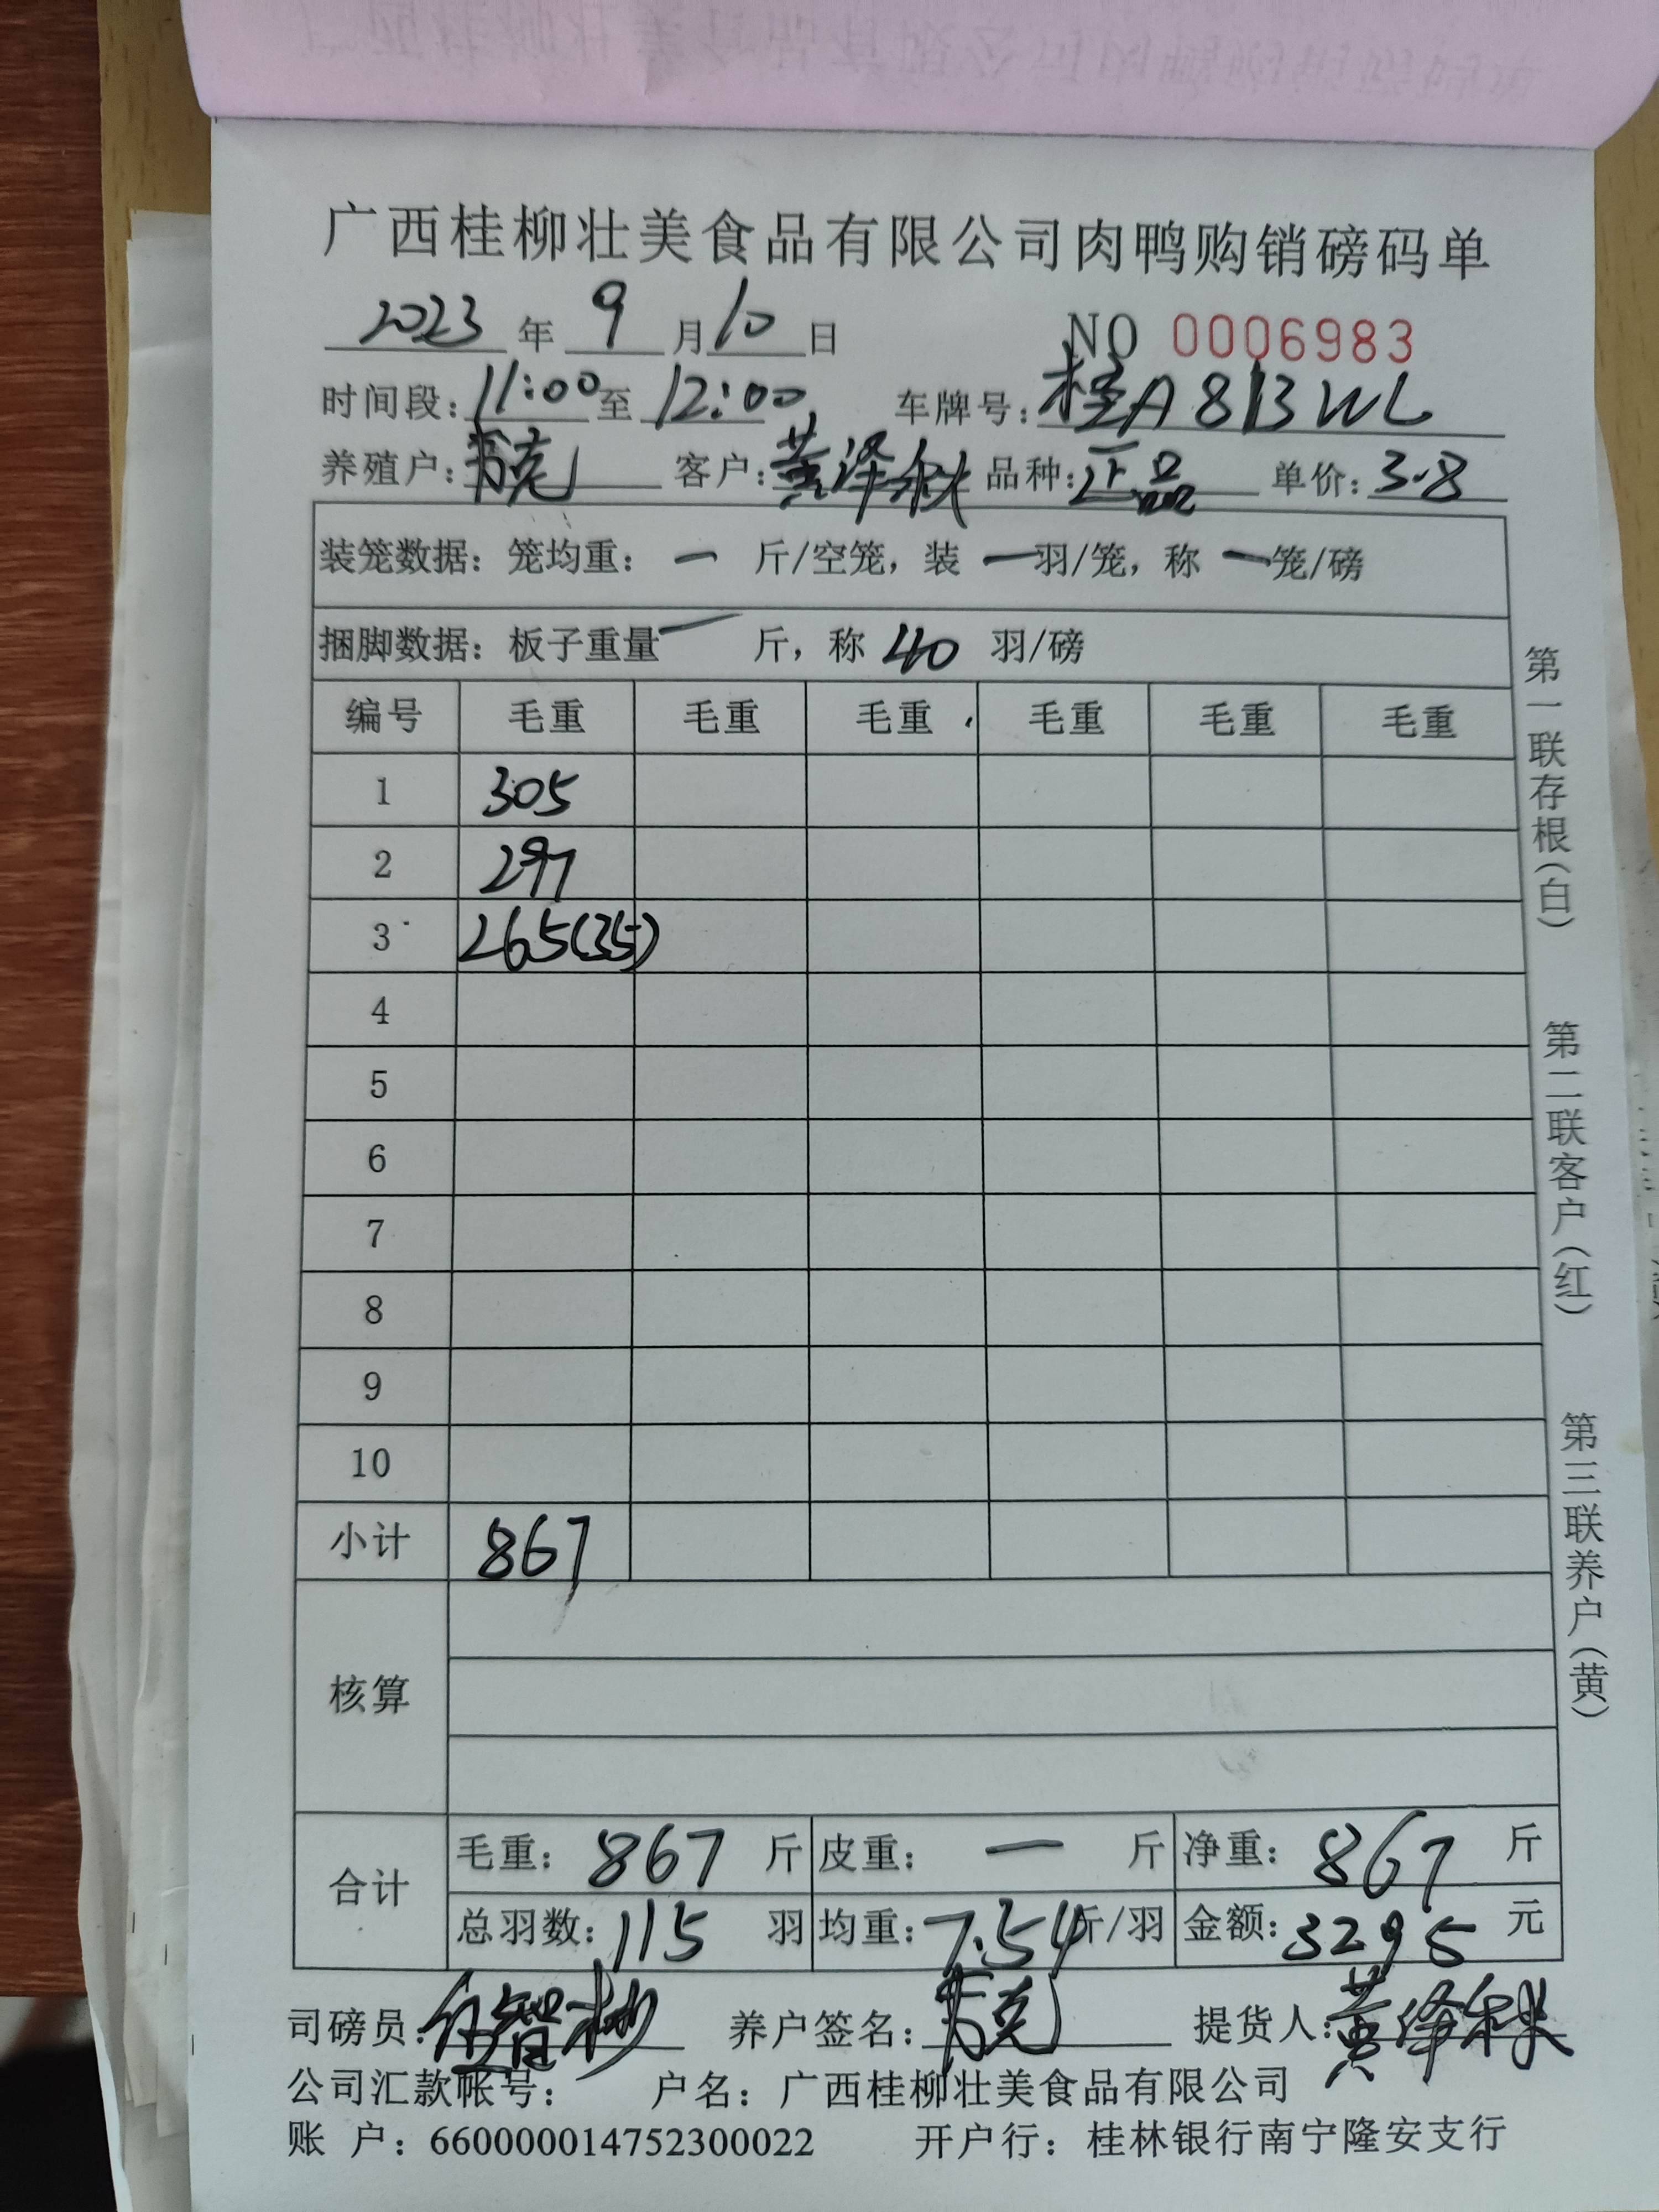 广西桂柳壮美食品有限公司肉鸭购销磅码单
2023年9月10日 NO 0006983
时间段：11:00至12:00 车牌号：桂A813WL
养殖户： 客户：黄泽秋 品种：正品 单价：3.8
装笼数据：笼均重：一斤/空笼，装一羽/笼，称一笼/磅
捆脚数据：板子重量一斤，称40羽/磅
编号 毛重 毛重 毛重 毛重 毛重 毛重
1 305
2 297
3 265(35)
4
5
6
7
8
9
10
小计 867
核算
合计 毛重：867斤 皮重：一斤 净重：867斤
总羽数：115羽 均重：7.54斤/羽 金额：3295元
司磅员：智彬 养户签名： 提货人：黄泽秋
公司汇款帐号： 户名：广西桂柳壮美食品有限公司
账 户：660000014752300022 开户行：桂林银行南宁隆安支行
第一联存根（白）
第二联客户（红）
第三联养户（黄）